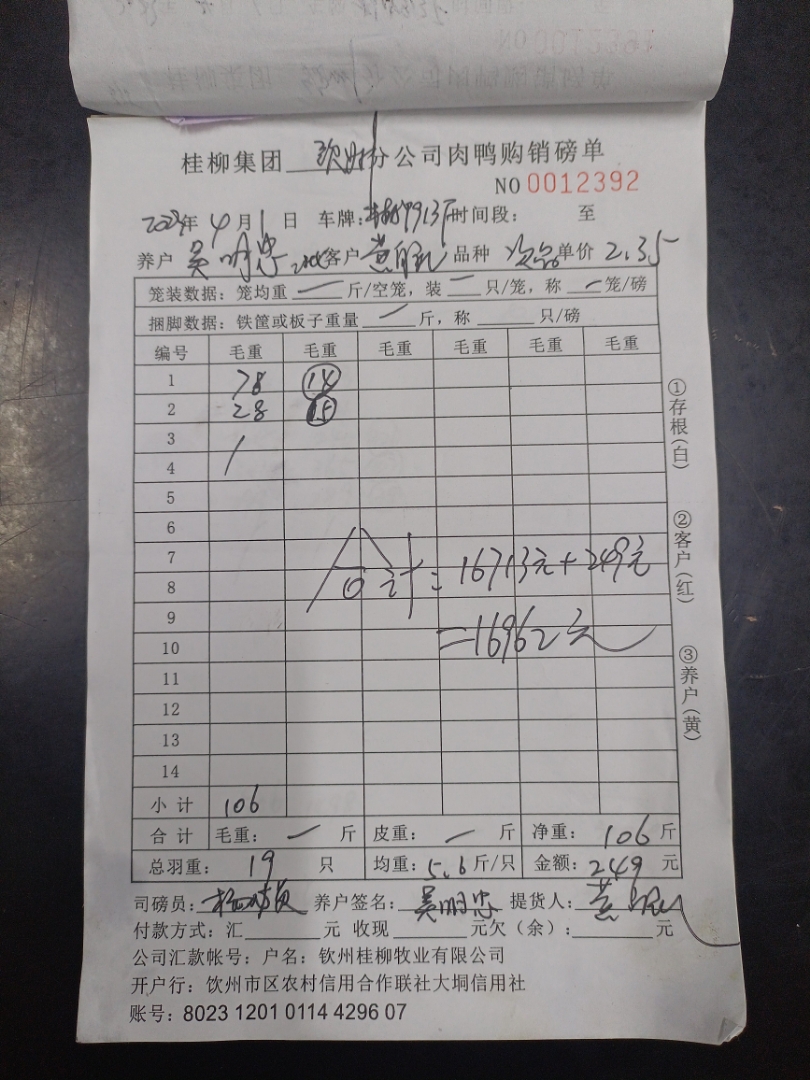 桂柳集团 钦州分公司肉鸭购销磅单
NO 0012392
年 4 月 1 日 车牌: 时间段: 至
养户 吴明忠 客户 黄 品种 次品 单价 2.35
笼装数据:笼均重 一 斤/空笼,装 一 只/笼,称 一 笼/磅
捆脚数据:铁筐或板子重量 一 斤,称 只/磅
编号 毛重 毛重 毛重 毛重 毛重 毛重
1 78 14
2 28 5
3
4
5
6
7
8
9
10
11
12
13
14
合计=16713元+249元
=16962元
小计 106
合计 毛重: 一 斤 皮重: 一 斤 净重: 106 斤
总羽重: 19 只 均重: 5.6 斤/只 金额: 249 元
司磅员: 养户签名: 吴明忠 提货人: 黄
付款方式:汇 元 收现 元欠(余): 元
公司汇款帐号:户名:钦州桂柳牧业有限公司
开户行:钦州市区农村信用合作联社大垌信用社
账号:8023 1201 0114 4296 07
①存根(白)
②客户(红)
③养户(黄)